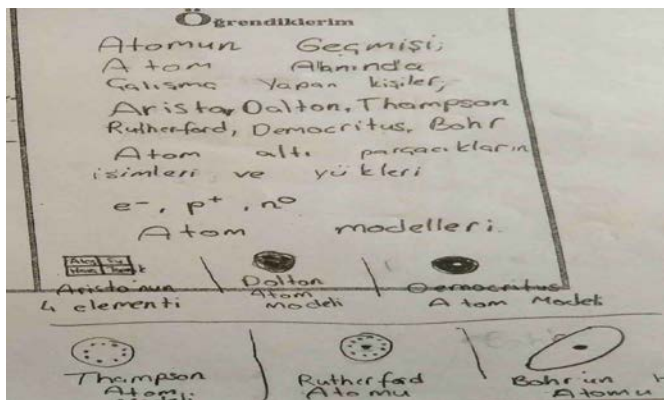 Öğrendiklerim
Atomun Geçmişi;
Atom Alanında
Çalışma Yapan kişiler;
Aristo, Dalton, Thampson
Rutherford, Democritus, Bohr
Atom altı parçacıkların
isimleri ve yükleri
e-, p+, n0
Atom modelleri.
Ateş Su
Hava
Aristo'nun
4 elementi
Dalton
Atom
modeli
Democritus
Atom Modeli
Thampson
Atom
Rutherford
Atomu
Bohr'un
Atomu